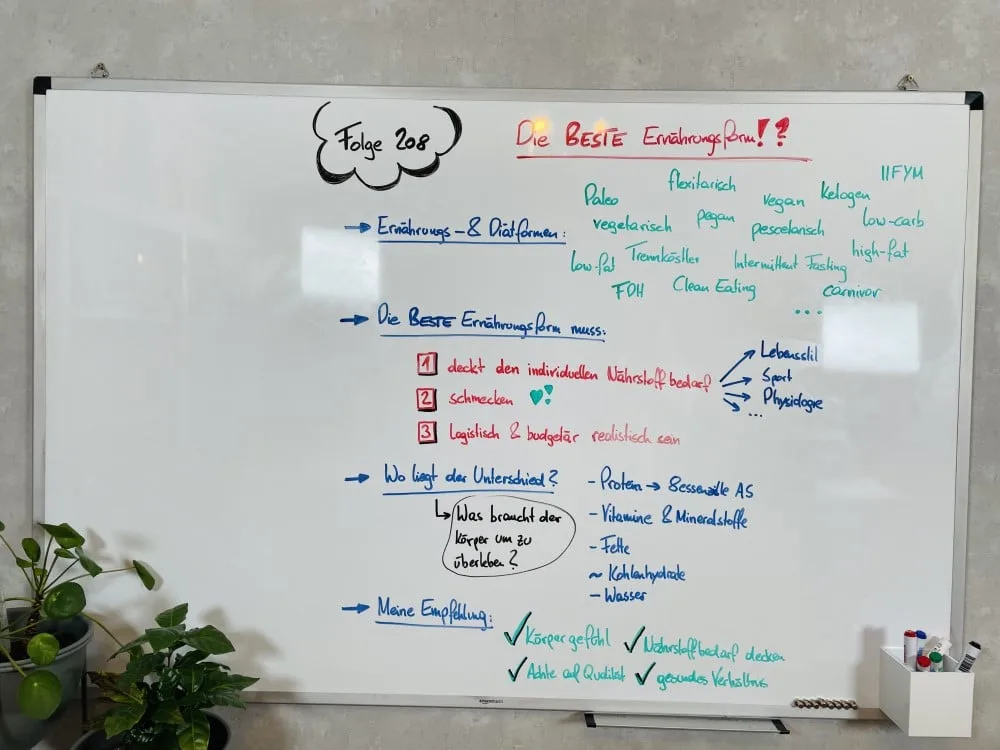 Folge 208
Die BESTE Ernährungsform!?
→ Ernährungs- & Diätformen:
Paleo flexitarisch vegan Ketogen IIFYM
vegetarisch pegan pescetarisch low-carb
low-fat Trennköstler Intermittent Fasting high-fat
FDH Clean Eating carnivor
...
→ Die BESTE Ernährungsform muss:
1 deckt den individuellen Nährstoffbedarf
→ Lebensstil
→ Sport
→ Physiologie
→ ...
2 schmecken
3 logistisch & budgetär realistisch sein
→ Wo liegt der Unterschied?
↳ Was braucht der
Körper um zu
überleben?
- Protein → 8 essenzielle AS
- Vitamine & Mineralstoffe
- Fette
~ Kohlenhydrate
- Wasser
→ Meine Empfehlung:
✓ Körpergefühl ✓ Nährstoffbedarf decken
✓ Achte auf Qualität ✓ gesundes Verhältnis